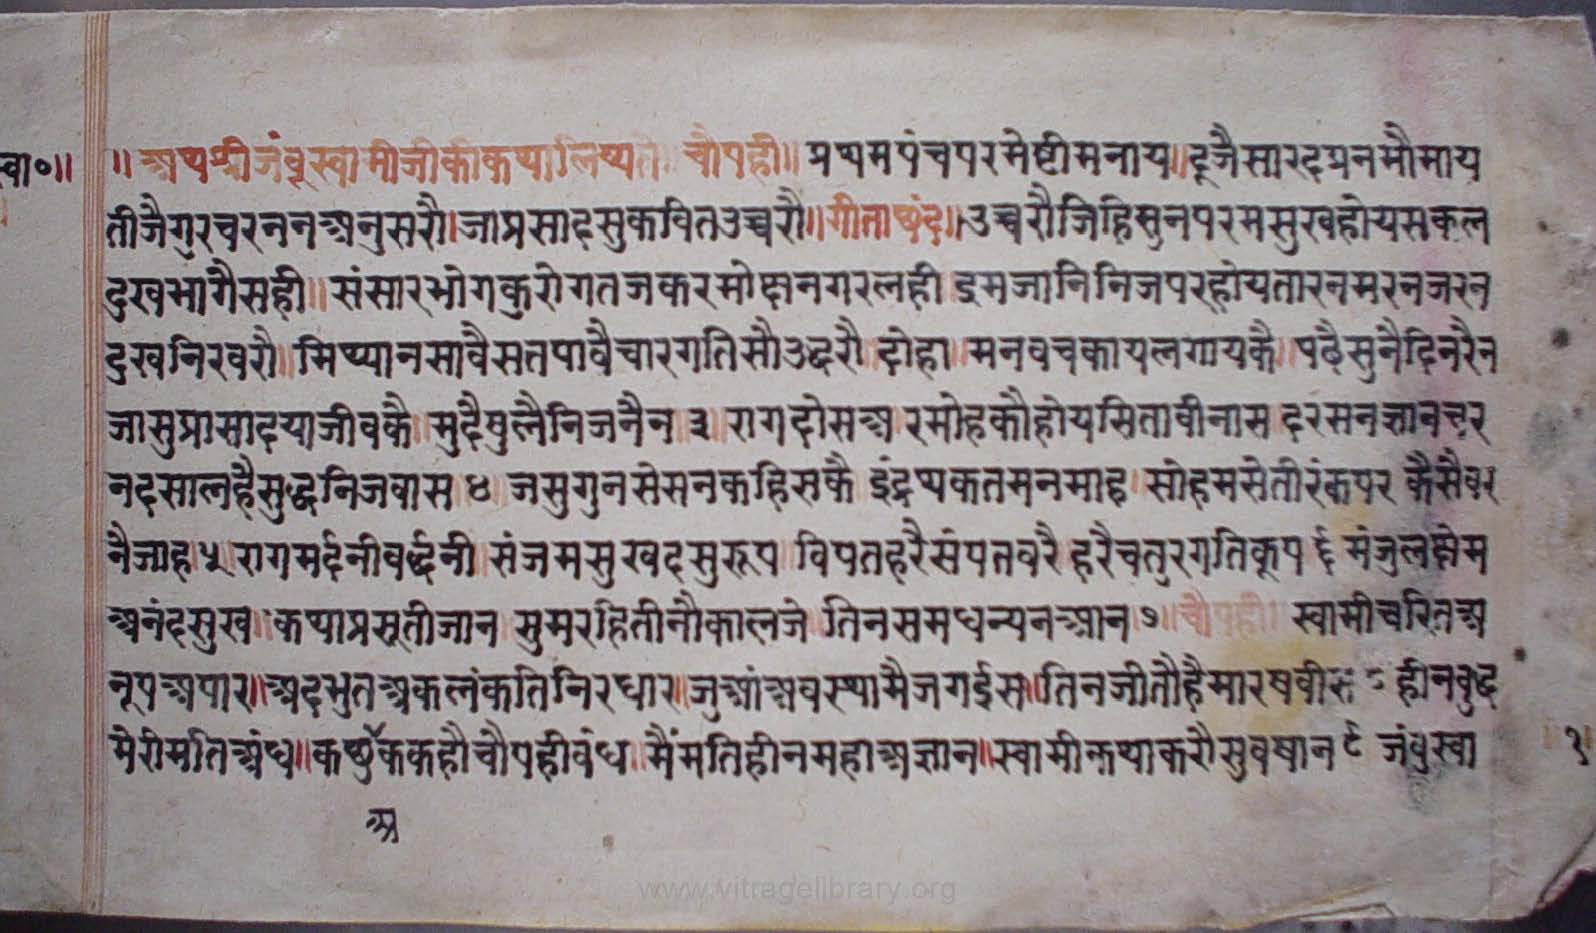 स्वा०॥
॥ अथश्रीजंबूस्वामीजीकीकथालिष्यते चौपही॥ प्रथमपंचपरमेष्टीमनाय॥दूजैसारदप्रनमौमाय
तीजैगुरचरननअनुसरौ।जाप्रसादसुकवितउच्चरौ॥गीताछंद॥उच्चरौजिहिसुनपरमसुखहोयसकल
दुखभागैसही॥ संसारभोगकुरोगतजकरमोक्षनगरलही इमजानिनिजपरहोयतारनमरनजरन
दुखनिरवरौ॥मिथ्यानसावैसतपावैचारगतिसौउद्धरौ दोहा॥मनवचकायलगायकै॥पढैसुनैदिनरैन
जासुप्रासादयाजीवकै॥मुदैषुलैनिजनैन ३॥ रागदोसअरमोहकौहोयसितावीनास दरसनज्ञानचर
नदसालहैसुद्धनिजवास ४ जसुगुनसेसनकहिसकै इंद्रथकतमनमाह सोहमसेतीरंकपर कैसैवर
नैजाह ५ रागमर्दनीवर्द्धनी संजमसुखदसुरूप विपतहरैसंपतवरै हरैचतुरगतिकूप ६ मंजुल
अनंदसुख॥कथाप्रसूतीजान सुमरहितीनौकालजे तिनसमधन्यनआन ७॥चौपही॥ स्वामीचरितअ
नूपअपार॥अदभुतअकलंकतिनिरधार॥जुआंअवस्थामैजगईस॥तिनजीतौहैमार हीनबुद्ध
मेरीमतिअंध॥कछुकहौचौपहीबंध॥मैंमतिहीनमहाअज्ञान॥स्वामीकथाकरौसुवषान ९ जंबुस्वा
१
अ
www.vitragelibrary.org